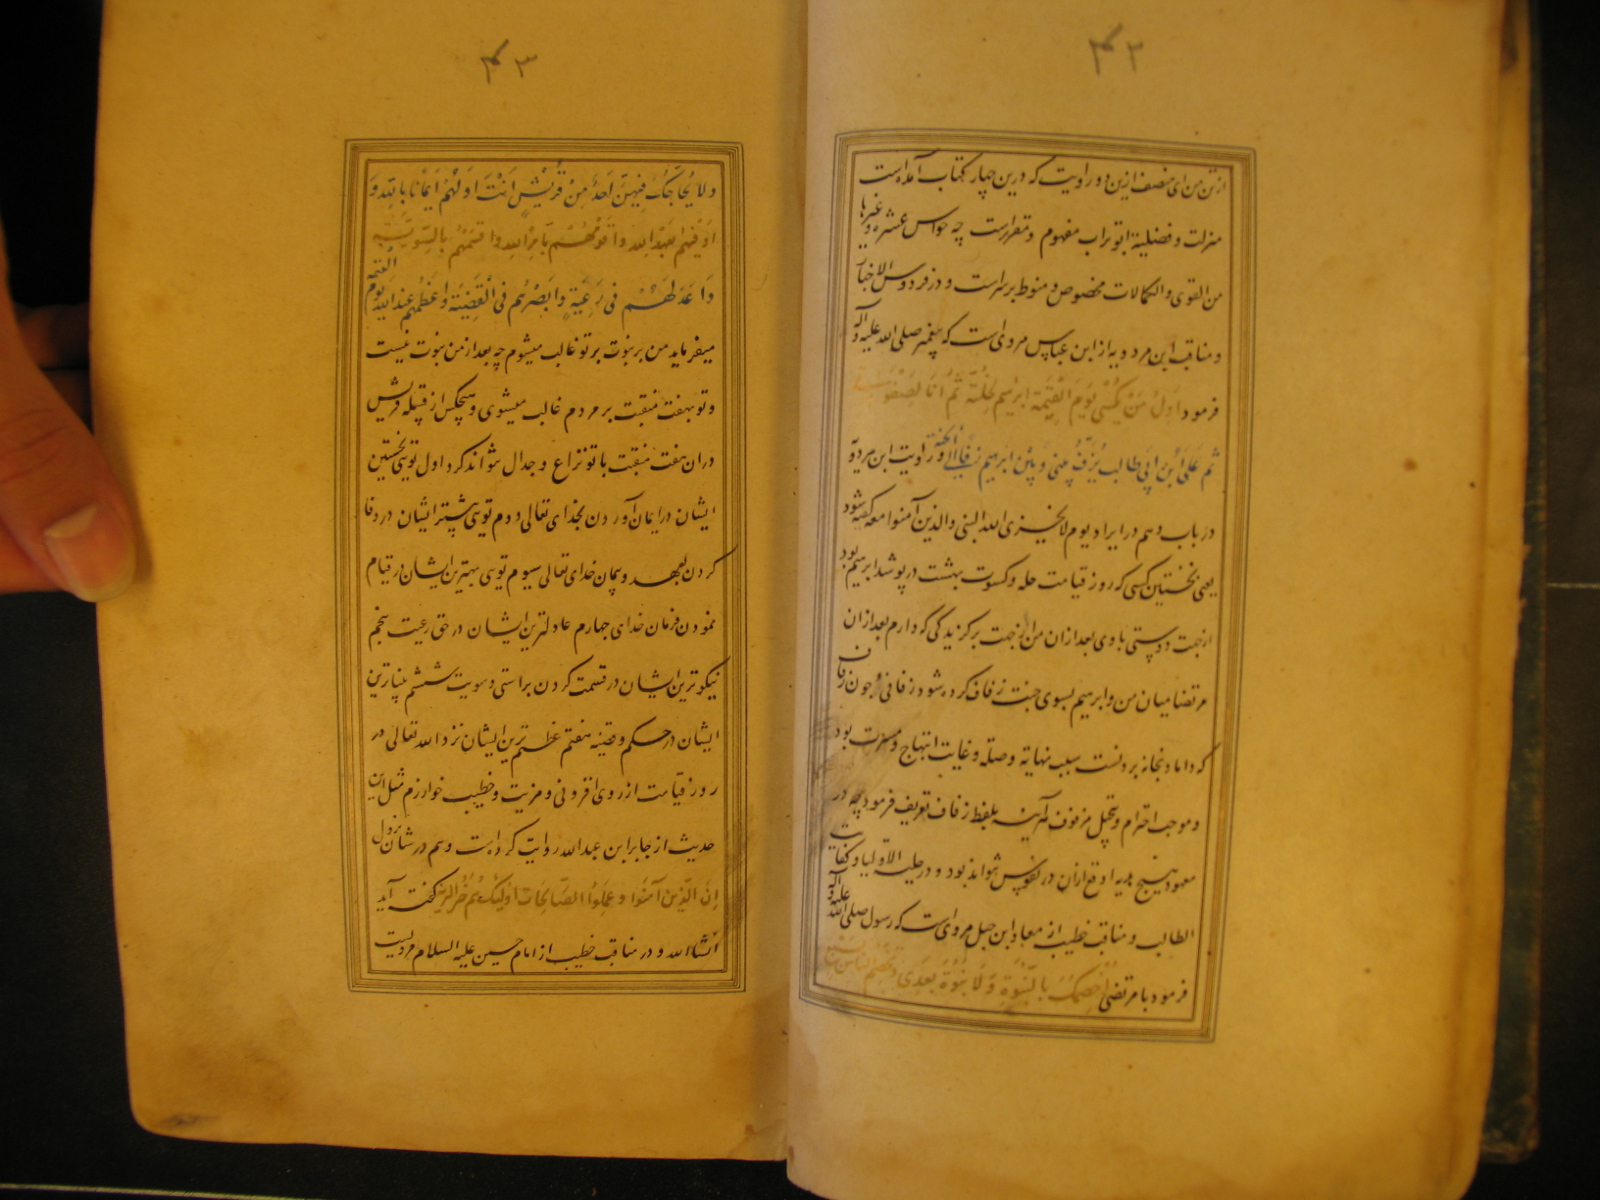 ۴۲
از تن من ای منصف ازین دو روایت که درین چهار کتاب آمده است
منزلت و فضلیة ابو تراب مفهوم و مقررست چه حواس عشره و غیرها
من القوی و الکمالات مخصوص و منوط بر سر است و در فردوس الاخبار
و مناقب ابن مردویه از ابن عباس مروی است که پیغمبر صلی الله علیه وآله
فرمود اَوّلُ مَنْ یُکْسی یَومَ القِیٰمَة ابراهیم لِخُلَّتِه ثُمَّ اَنَا لِصَفْوَتِی
ثم عَلِیّ ابْن ابی طالب یُزَفُّ بینی و بین ابراهیم زفافا الی الجنة و روایت ابن مردویه
در باب دهم در ایراد یوم لا یخزی الله النبی و الذین آمنوا معه گفته شود
یعنی نخستین کسی که روز قیامت حله و کسوت بهشت در پوشد ابراهیم بود
از جهت دوستی با وی بعد از آن من از جهت برگزیدگی که دارم بعد از آن
مرتضا میان من و ابراهیم بسوی جنت زفاف کرده شود زفافی چون زفاف
که داماد بخانه بردنست سبب نهایة وصلة و غایت ابتهاج و مسرت بود
و موجب احترام و تبجیل مزفوف هر آینه بلفظ زفاف تعریف فرمود چه در
معهود هیچ هدیه اوقع ازان در نفوس نتواند بود و در حلیة الاولیا و کفایت
الطالب و مناقب خطیب از معاذ ابن جبل مروی است که رسول صلی الله علیه وآله
فرمود با مرتضی اَخْصِمُکَ بِالنُّبُوَّةِ وَلَا نُبُوَّةَ بَعْدِی و تخصم الناس بسبع
۴۳
ولا یُحَاجُّکَ فِیهِنَّ اَحَدٌ مِنْ قُرَیْشٍ اَنْتَ اَوَّلُهُمْ اِیمَانًا بِاللهِ وَ
اَوْفیهُم بِعَهْدِ الله وَ اَقْوَمُهُمْ بِاَمْرِ اللهِ وَ اَقْسَمُهُم بِالسَّوِیَّة
وَ اَعْدَلُهُمْ فی رَعِیَّةٍ وَ اَبْصَرُهُم فی الْقَضِیَّة وَ اعْظَمُهُم عند الله یَوْمَ القیٰمة
میفرماید من بر نبوت بر تو غالب میشوم چه بعد از من نبوت نیست
و تو بهفت منقبت بر مردم غالب میشوی و هیچکس از قبیله قریش
دران هفت منقبت با تو نزاع و جدال نتواند کرد اول تویی نخستین
ایشان در ایمان آوردن بخدای تعالی دوم تویی بیشتر ایشان در وفا
کردن بعهد و پیمان خدای تعالی سیوم تویی بهترین ایشان در قیام
نمودن فرمان خدای چهارم عادلترین ایشان در حق رعیت پنجم
نیکوترین ایشان در قسمت کردن براستی و سویت ششم بیناترین
ایشان در حکم و قضیه هفتم عظیم ترین ایشان نزد الله تعالی در
روز قیامت از روی افزونی و مزیت و خطیب خوارزم مثل این
حدیث از جابر ابن عبد الله روایت کرده است و هم در شان نزول
اِنَّ الَّذِیْنَ آمَنُوا وَ عَمِلُوا الصَّالِحَاتِ اُولٰئِکَ هُمْ خَیْرُ الْبَرِیَّة گفته آید
انشا الله و در مناقب خطیب از امام حسین علیه السلام مرویست